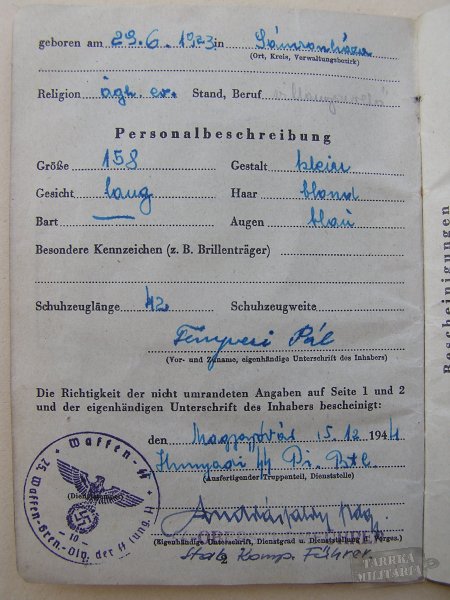 geboren am 29.6.1923 in
(Ort, Kreis, Verwaltungsbezirk)
Religion ágh. ev. Stand, Beruf
Personalbeschreibung
Größe 158 Gestalt klein
Gesicht lang Haar blond
Bart — Augen blau
Besondere Kennzeichen (z. B. Brillenträger)
Schuhzeuglänge 42 Schuhzeugweite
Fenyvesi Pál
(Vor- und Zuname, eigenhändige Unterschrift des Inhabers)
Die Richtigkeit der nicht umrandeten Angaben auf Seite 1 und 2
und der eigenhändigen Unterschrift des Inhabers bescheinigt:
den 15.12 1944
Hunyadi
(Ausfertigender Truppenteil, Dienststelle)
(Eigenhändige Unterschrift, Dienstgrad u. Dienststellung d. Vorges.)
Stabs Komp. Führer
2
Waffen-SS
25. Waffen-Gren.-Div. der SS (ung. 1)
Bescheinigungen
TARRKA
MILITARIA